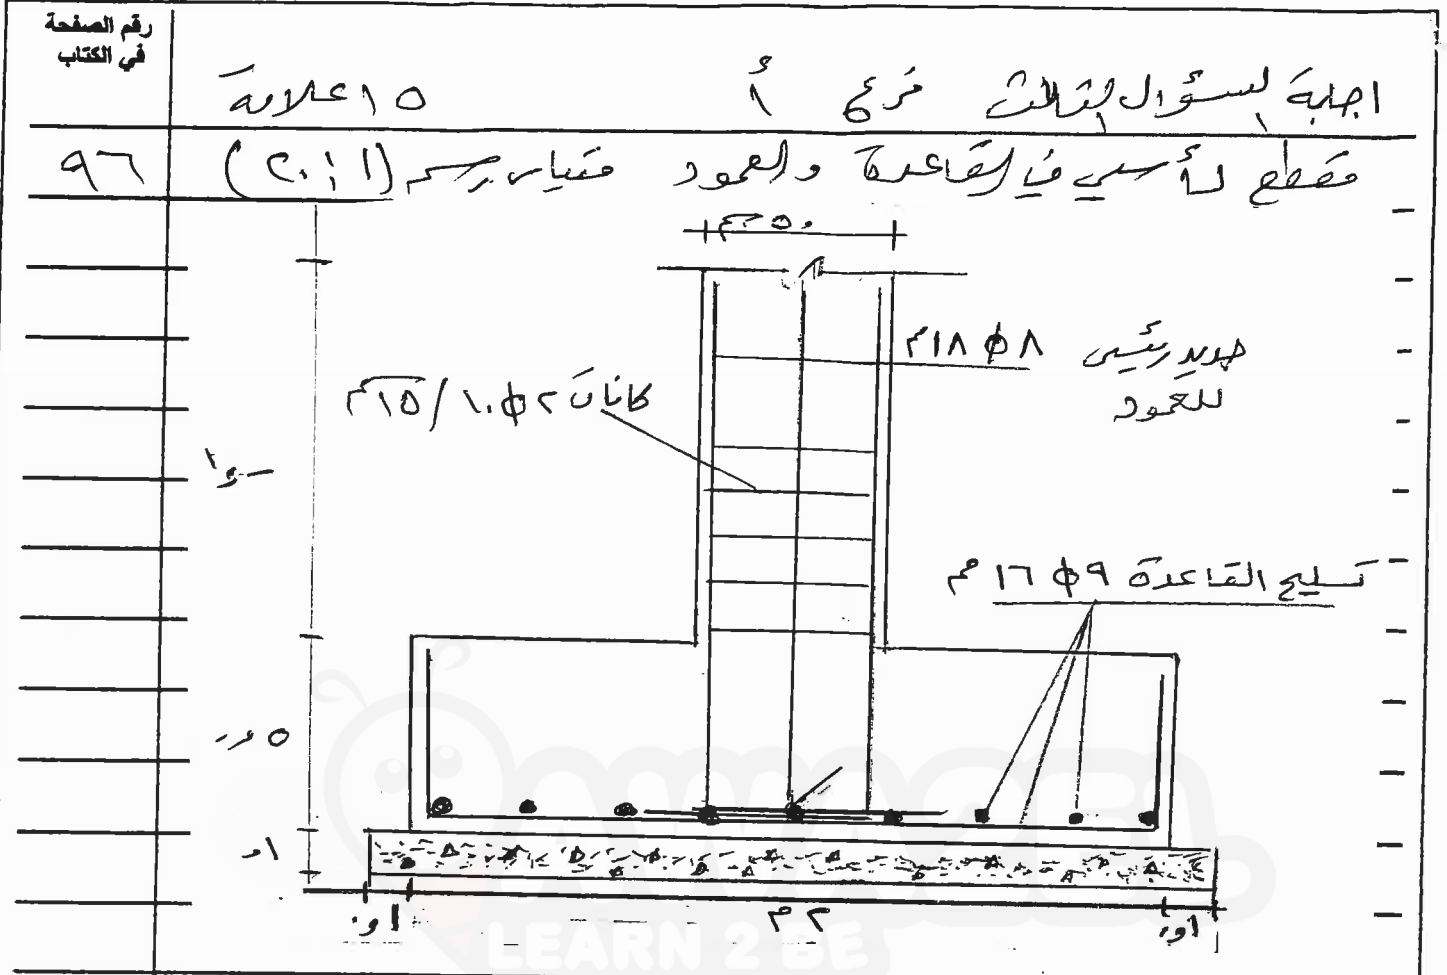 رقم الصفحة
في الكتاب
اجابة السؤال الثالث فرع أ ١٥ علامة
مقطع رأسي في القاعدة والعمود مقياس رسم (٢٠:١) ٩٦
٥٠سم
حديد رئيسي ٨ ф ١٨م
للعمود
كانات ٢ ф ١٠/١٥سم
تسليح القاعدة ٩ ф ١٦ مم
٠,٥
٠,١
٠,١
٢م
٠,١
LEARN 2 BE